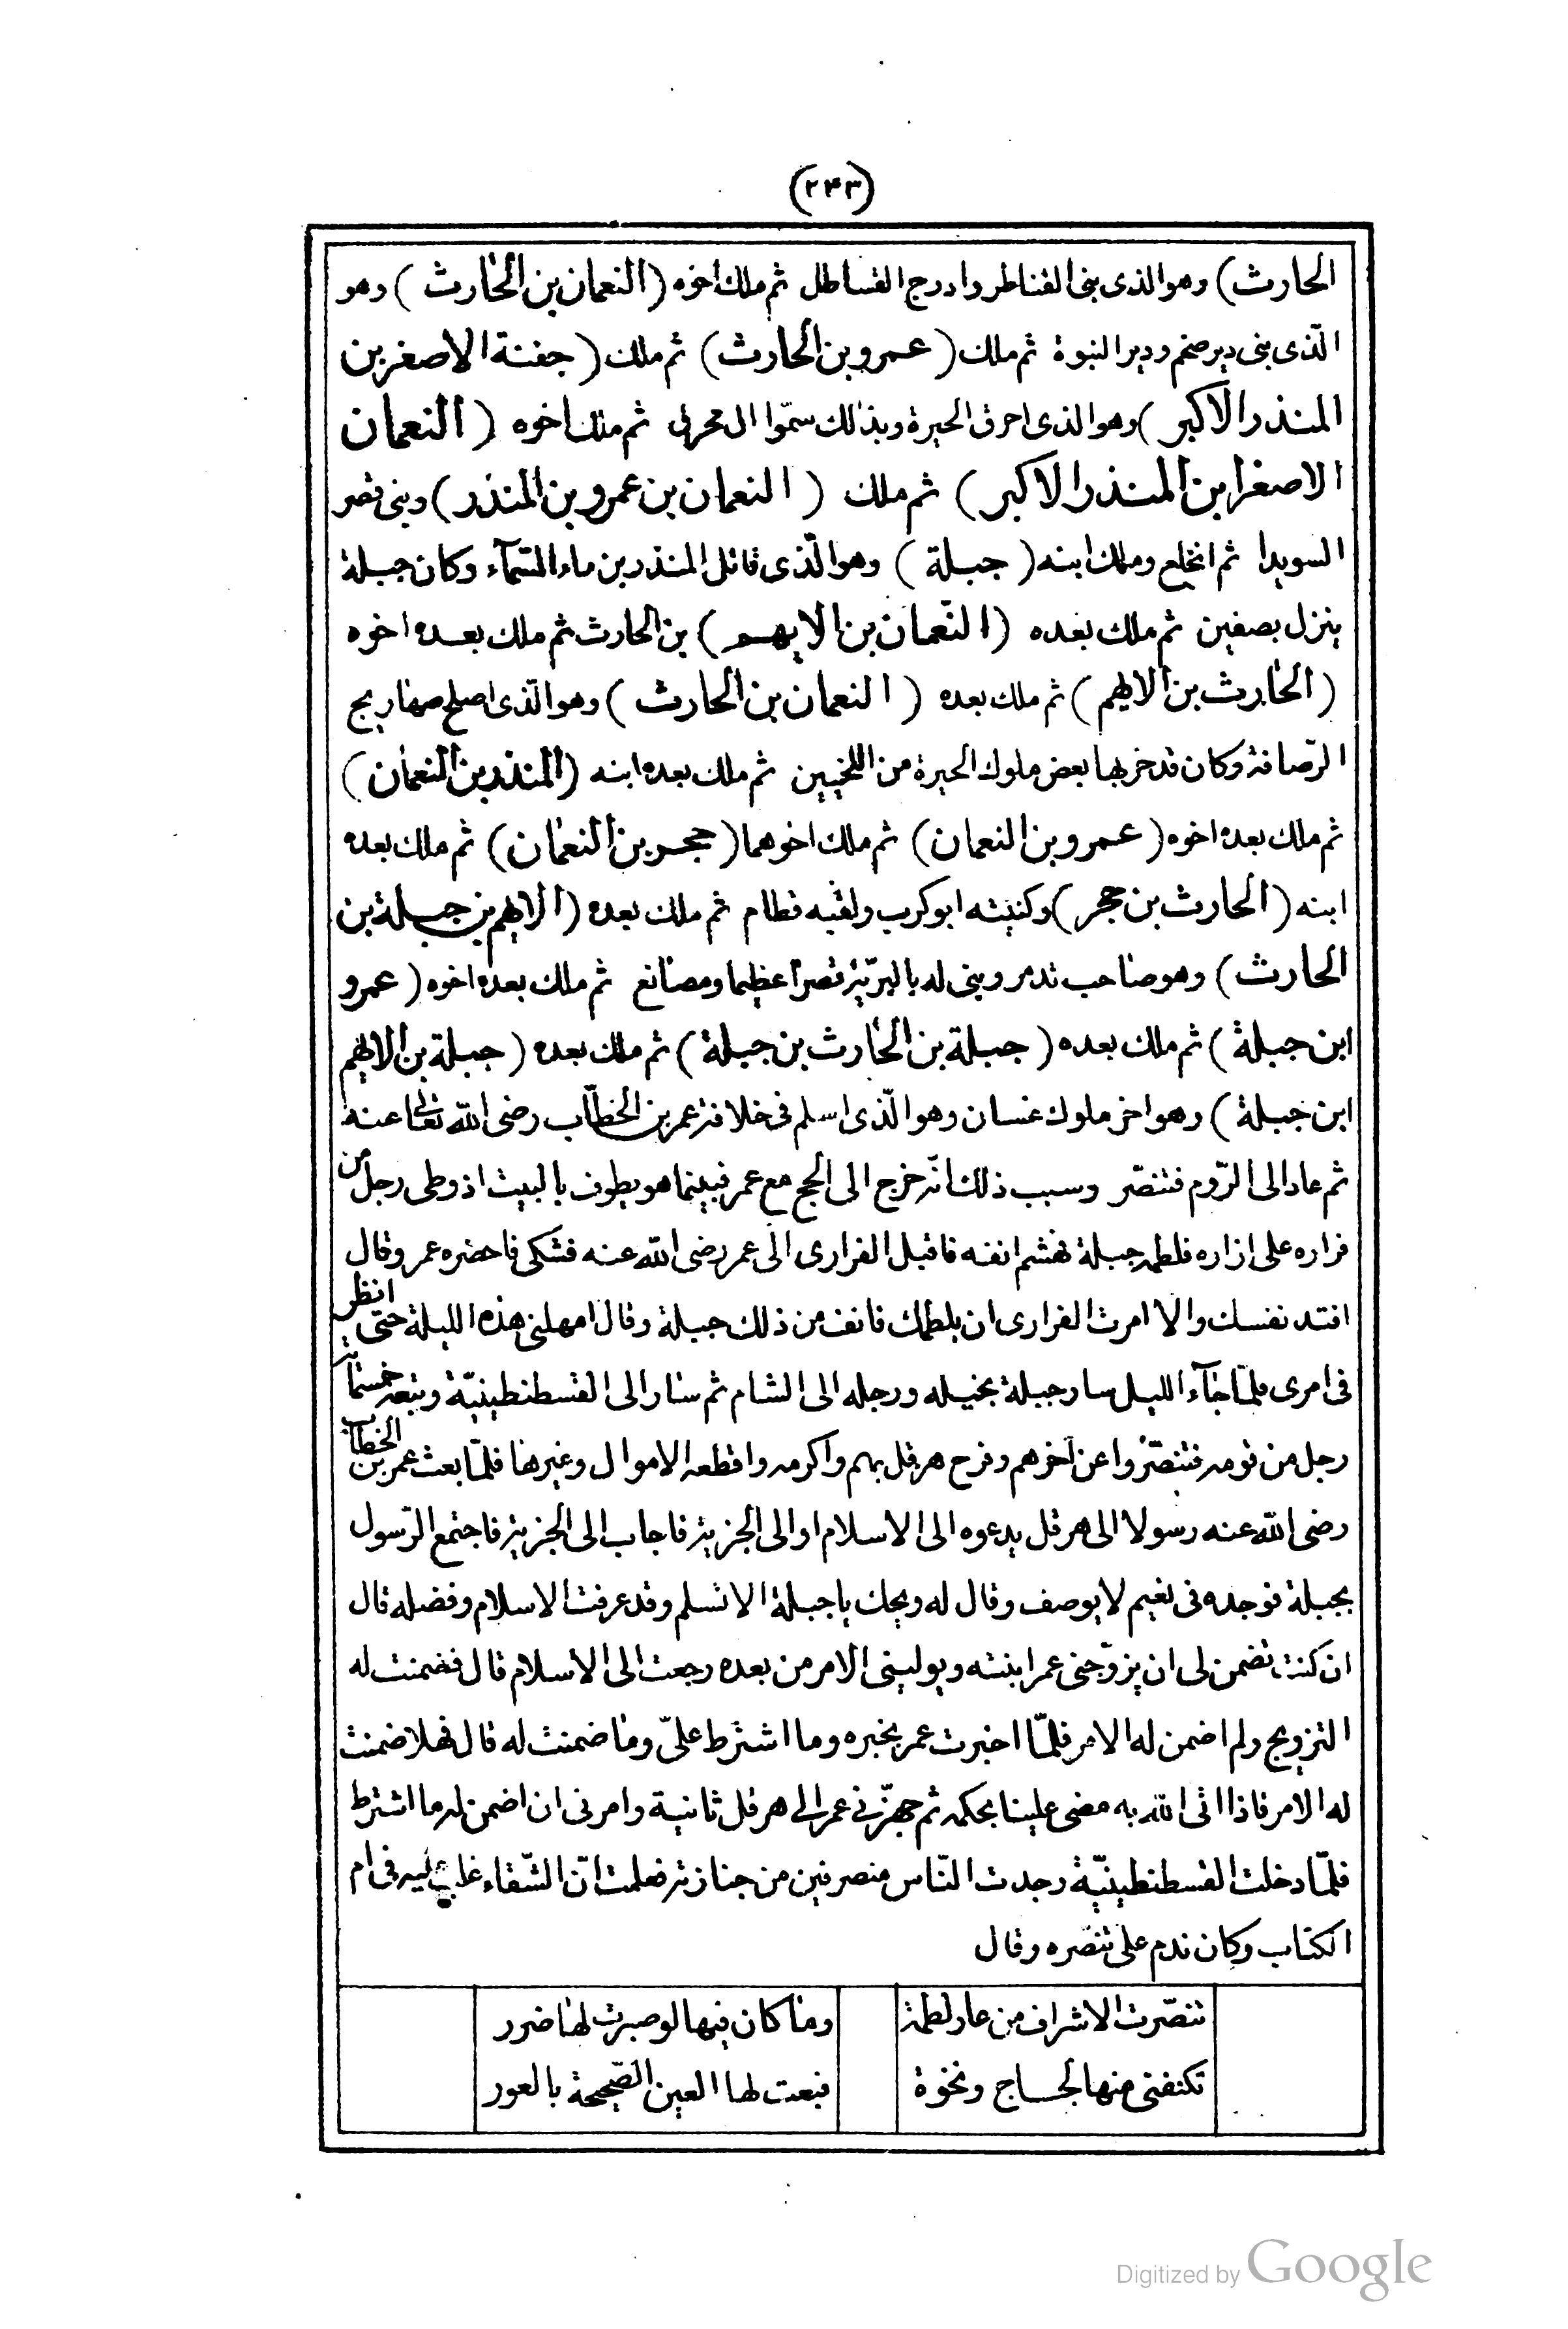 (٢٤٣)
الحارث) وهو الذى بنى القناطر وادرج القساطل ثم ملك اخوه (النعمان بن الحارث) وهو
الّذى بنى دير ضخم ودير النبوة ثم ملك (عمرو بن الحارث) ثم ملك (جفنة الاصغر بن
المنذر الاكبر) وهو الذى احرق الحيرة وبذلك سمّوا ال محرق ثم ملك اخوه (النعمان
الاصغر ابن المنذر الاكبر) ثم ملك (النعمان بن عمرو بن المنذر) وبنى قصر
السويدا ثم انخلع وملك ابنه (جبلة) وهو الّذى قاتل المنذر بن ماء السّمآء وكان جبلة
ينزل بصفين ثم ملك بعده (النّعمان بن الايهم) بن الحارث ثم ملك بعده اخوه
(الحارث بن الايهم) ثم ملك بعده (النعمان بن الحارث) وهو الّذى اصلح صهاريج
الرّصافة وكان قد خربها بعض ملوك الحيرة من اللخميين ثم ملك بعده ابنه (المنذر بن النعمان)
ثم ملك بعده اخوه (عمرو بن النعمان) ثم ملك اخوهما (حجر بن النعمان) ثم ملك بعده
ابنه (الحارث بن حجر) وكنيته ابو كرب ولقبه قطام ثم ملك بعده (الايهم بن جبلة بن
الحارث) وهو صاحب تدمر وبنى له بالبرّية قصرا عظيما ومصانع ثم ملك بعده اخوه (عمرو
ابن جبلة) ثم ملك بعده (جبلة بن الحارث بن جبلة) ثم ملك بعده (جبلة بن الايهم
ابن جبلة) وهو اخر ملوك غسان وهو الّذى اسلم فى خلافة عمر بن الخطّاب رضى الله تعالى عنه
ثم عاد الى الرّوم فتنصّر وسبب ذلك انّه خرج الى الحج مع عمر فبينما هو يطوف بالبيت اذ وطى رجل من
فزاره على ازاره فلطمه جبلة فهشم انفه فاقبل الفزارى الى عمر رضى الله عنه فشكى فاحضره عمر وقال
افتد نفسك والا امرت الفزارى ان يلطمك فانف من ذلك جبلة وقال امهلنى هذه الليلة حتى انظر
فى امرى فلمّا جآء الليل سار جبلة بخيله ورجله الى الشام ثم سار الى القسطنطينيّة وتبعه خمسماية
رجل من قومه فتنصّروا عن آخرهم وفرح هرقل بهم واكرمه واقطعه الاموال وغيرها فلمّا بعث عمر بن الخطاب
رضى الله عنه رسولا الى هرقل يدعوه الى الاسلام او الى الجزية فاجاب الى الجزية فاجتمع الرّسول
بجبلة فوجده فى نعيم لا يوصف وقال له ويحك يا جبلة الا تسلم وقد عرفت الاسلام وفضله قال
ان كنت تضمن لى ان يزوّجنى عمر ابنته ويولينى الامر من بعده رجعت الى الاسلام قال فضمنت له
التزويج ولم اضمن له الامر فلمّا اخبرت عمر بخبره وما اشترط علىّ وما ضمنت له قال فهلا ضمنت
له الامر فاذا اتى الله به مضى علينا بحكمه ثم جهّزنى عمر الى هرقل ثانية وامرنى ان اضمن له ما اشترط
فلمّا دخلت القسطنطينيّة وجدت النّاس منصرفين من جنازته فعلمت انّ الشّقاء غلب عليه فى ام
الكتاب وكان ندم على تنصّره وقال
تنصّرت الاشراف من عار لطمة وما كان فيها لو صبرت لها ضرر
تكنفنى منها لجاج ونخوة فبعت لها العين الصّحيحة بالعور
Digitized by Google